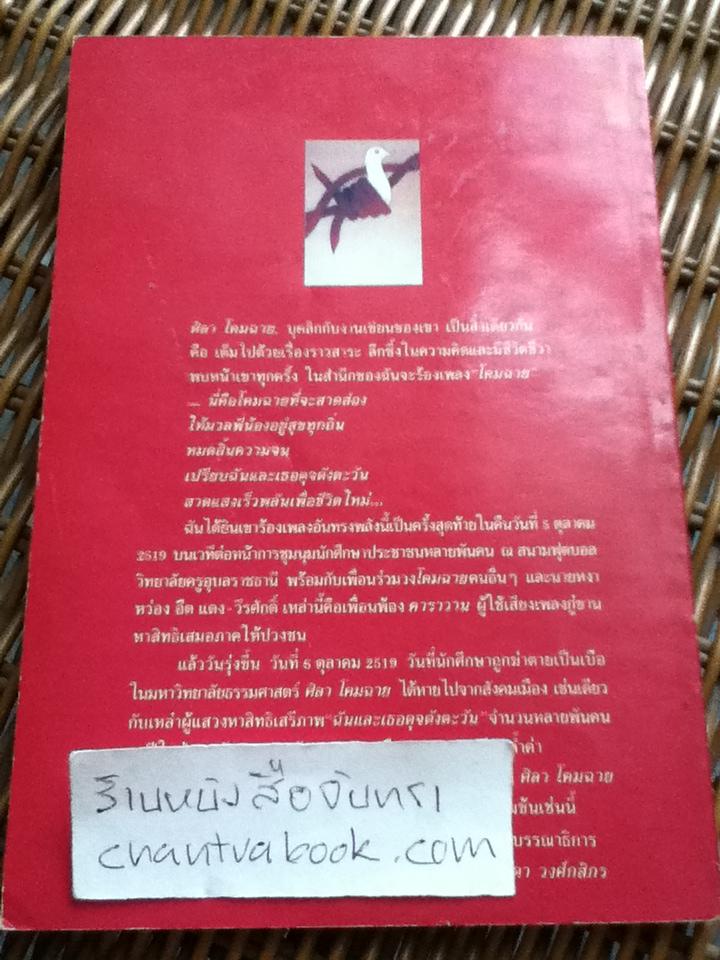 ศิลา โคมฉาย บุคลิกกับงานเขียนของเขา เป็นสิ่งเดียวกัน
คือ เต็มไปด้วยเรื่องราวสาระ ลึกซึ้งในความคิดและมีชีวิตชีวา
พบหน้าเขาทุกครั้ง ในสำนึกของฉันจะร้องเพลง "โคมฉาย"
... นี่คือโคมฉายที่จะสาดส่อง
ให้มวลพี่น้องอยู่สุขทุกถิ่น
หมดสิ้นความจน
เปรียบฉันและเธอดุจดังตะวัน
สาดแสงเร็วพลันเพื่อชีวิตใหม่...
ฉันได้ยินเขาร้องเพลงอันทรงพลังนี้เป็นครั้งสุดท้ายในคืนวันที่ 5 ตุลาคม
2519 บนเวทีต่อหน้าการชุมนุมนักศึกษาประชาชนหลายพันคน ณ สนามฟุตบอล
วิทยาลัยครูอุบลราชธานี พร้อมกับเพื่อนร่วมวงโคมฉายคนอื่นๆ และนายหงา
หว่อง อืด แดง-วีรศักดิ์ เหล่านี้คือเพื่อนพ้อง คาราวาน ผู้ใช้เสียงเพลงกู่ขาน
หาสิทธิเสมอภาคให้ปวงชน
แล้ววันรุ่งขึ้น วันที่ 6 ตุลาคม 2519 วันที่นักศึกษาถูกฆ่าตายเป็นเบือ
ในมหาวิทยาลัยธรรมศาสตร์ ศิลา โคมฉาย ได้หายไปจากสังคมเมือง เช่นเดียว
กับเหล่าผู้แสวงหาสิทธิเสรีภาพ "ฉันและเธอดุจดังตะวัน" จำนวนหลายพันคน
ศิลา โคมฉาย
เช่นนี้
บรรณาธิการ
วงศ์กสิกร
ร้านหนังสือจันทรา
chantrabook.com